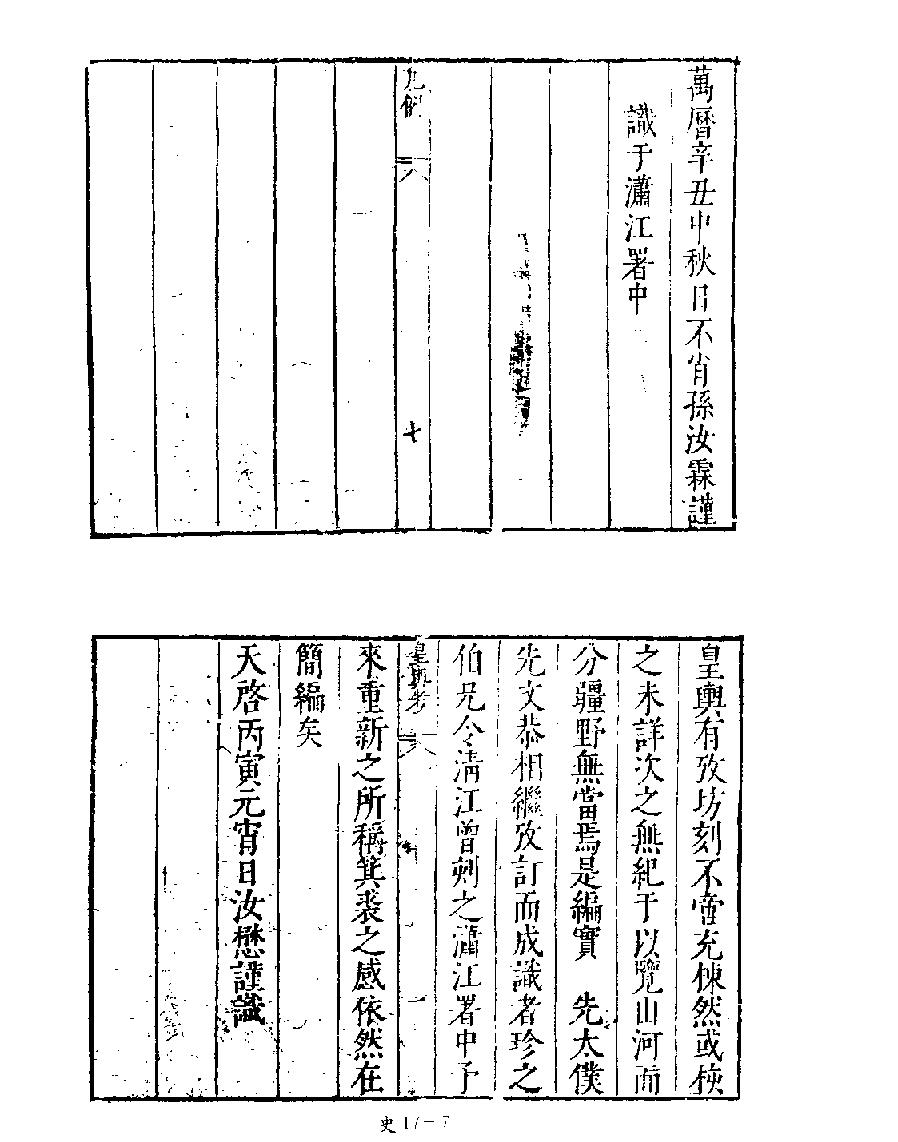 萬曆辛丑中秋日不肖孫汝霖謹
識于瀟江署中
凡例
七
皇輿有攷坊刻不啻充棟然或挾
之未詳次之無紀于以覽山河而
分疆野無當焉是編實 先太僕
先文恭相繼攷訂而成識者珍之
伯兄令清江曾刻之瀟江署中予
皇輿考
來重新之所稱箕裘之感依然在
簡編矣
天啓丙寅元宵日汝懋謹識
史17-7